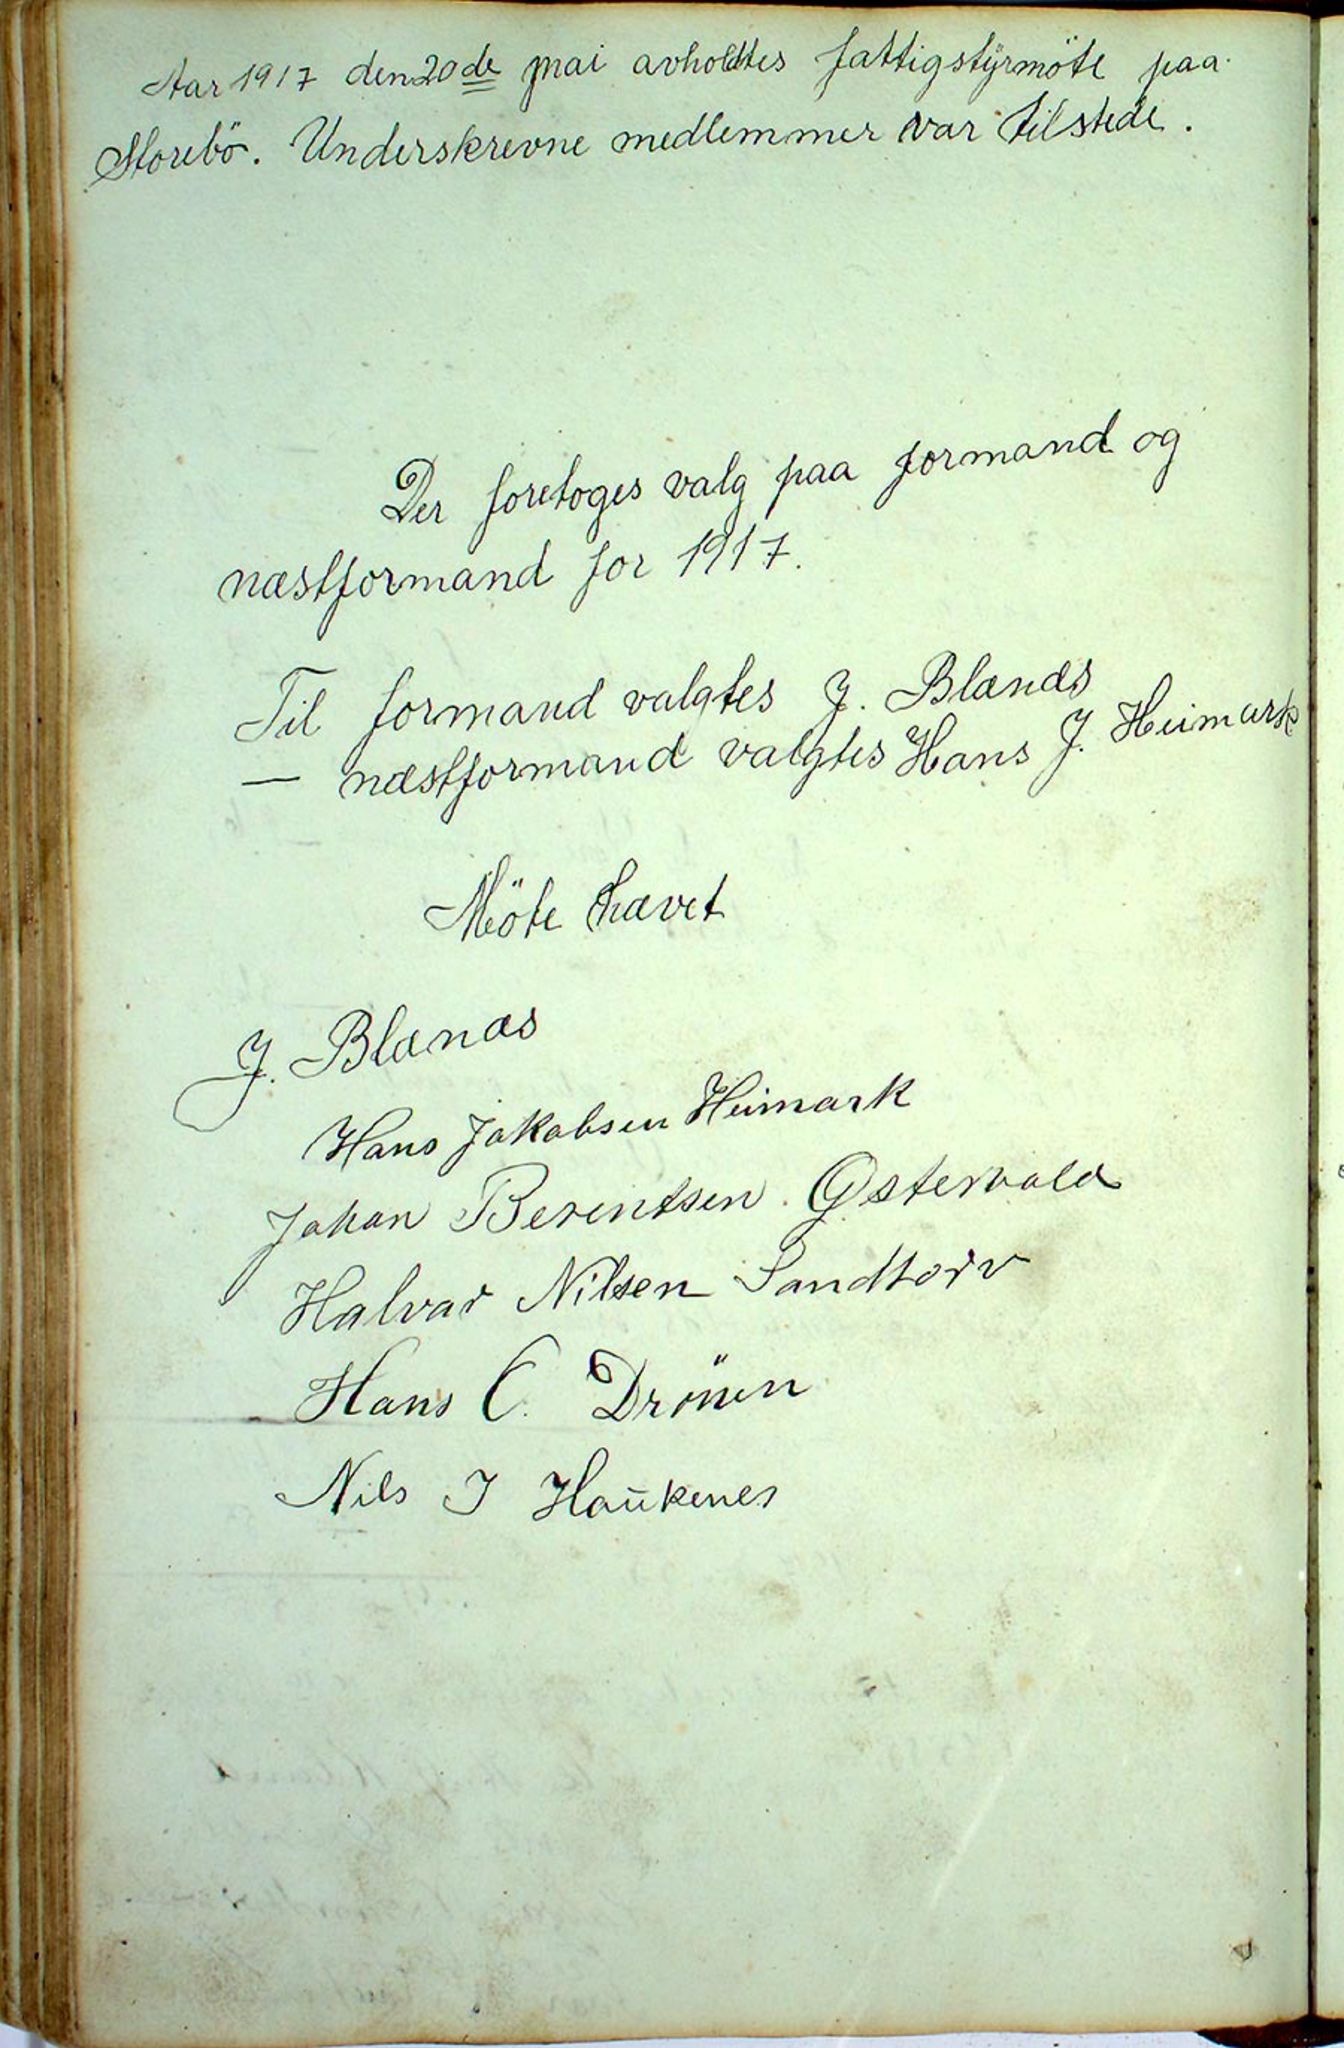 Aar 1917 den 20de mai avholdtes fattigstyrmöte paa
Storebö. Underskrevne medlemmer var tilstede.
Der foretoges valg paa formand og
næstformand for 1917.
Til formand valgtes J. Blænæs
— næstformand valgtes Hans J. Heimark
Möte hævet
J. Blænæs
Hans Jakobsen Heimark
Johan Berentsen Østervold
Halvar Nilsen Sandtorv
Hans C. Drönen
Nils J Haukenes